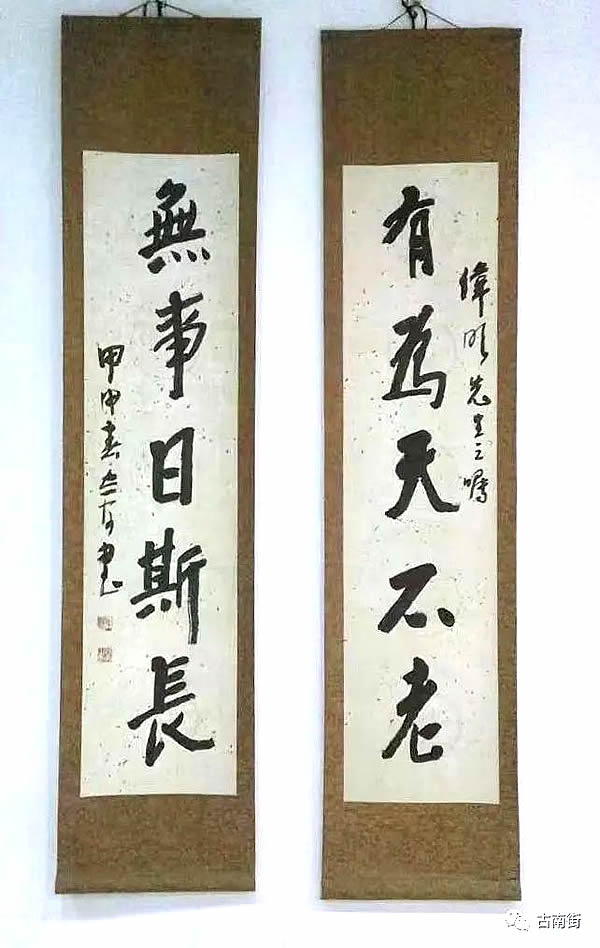 有為天不老
偉明先生之囑
無事日斯長
甲申春書
古南街